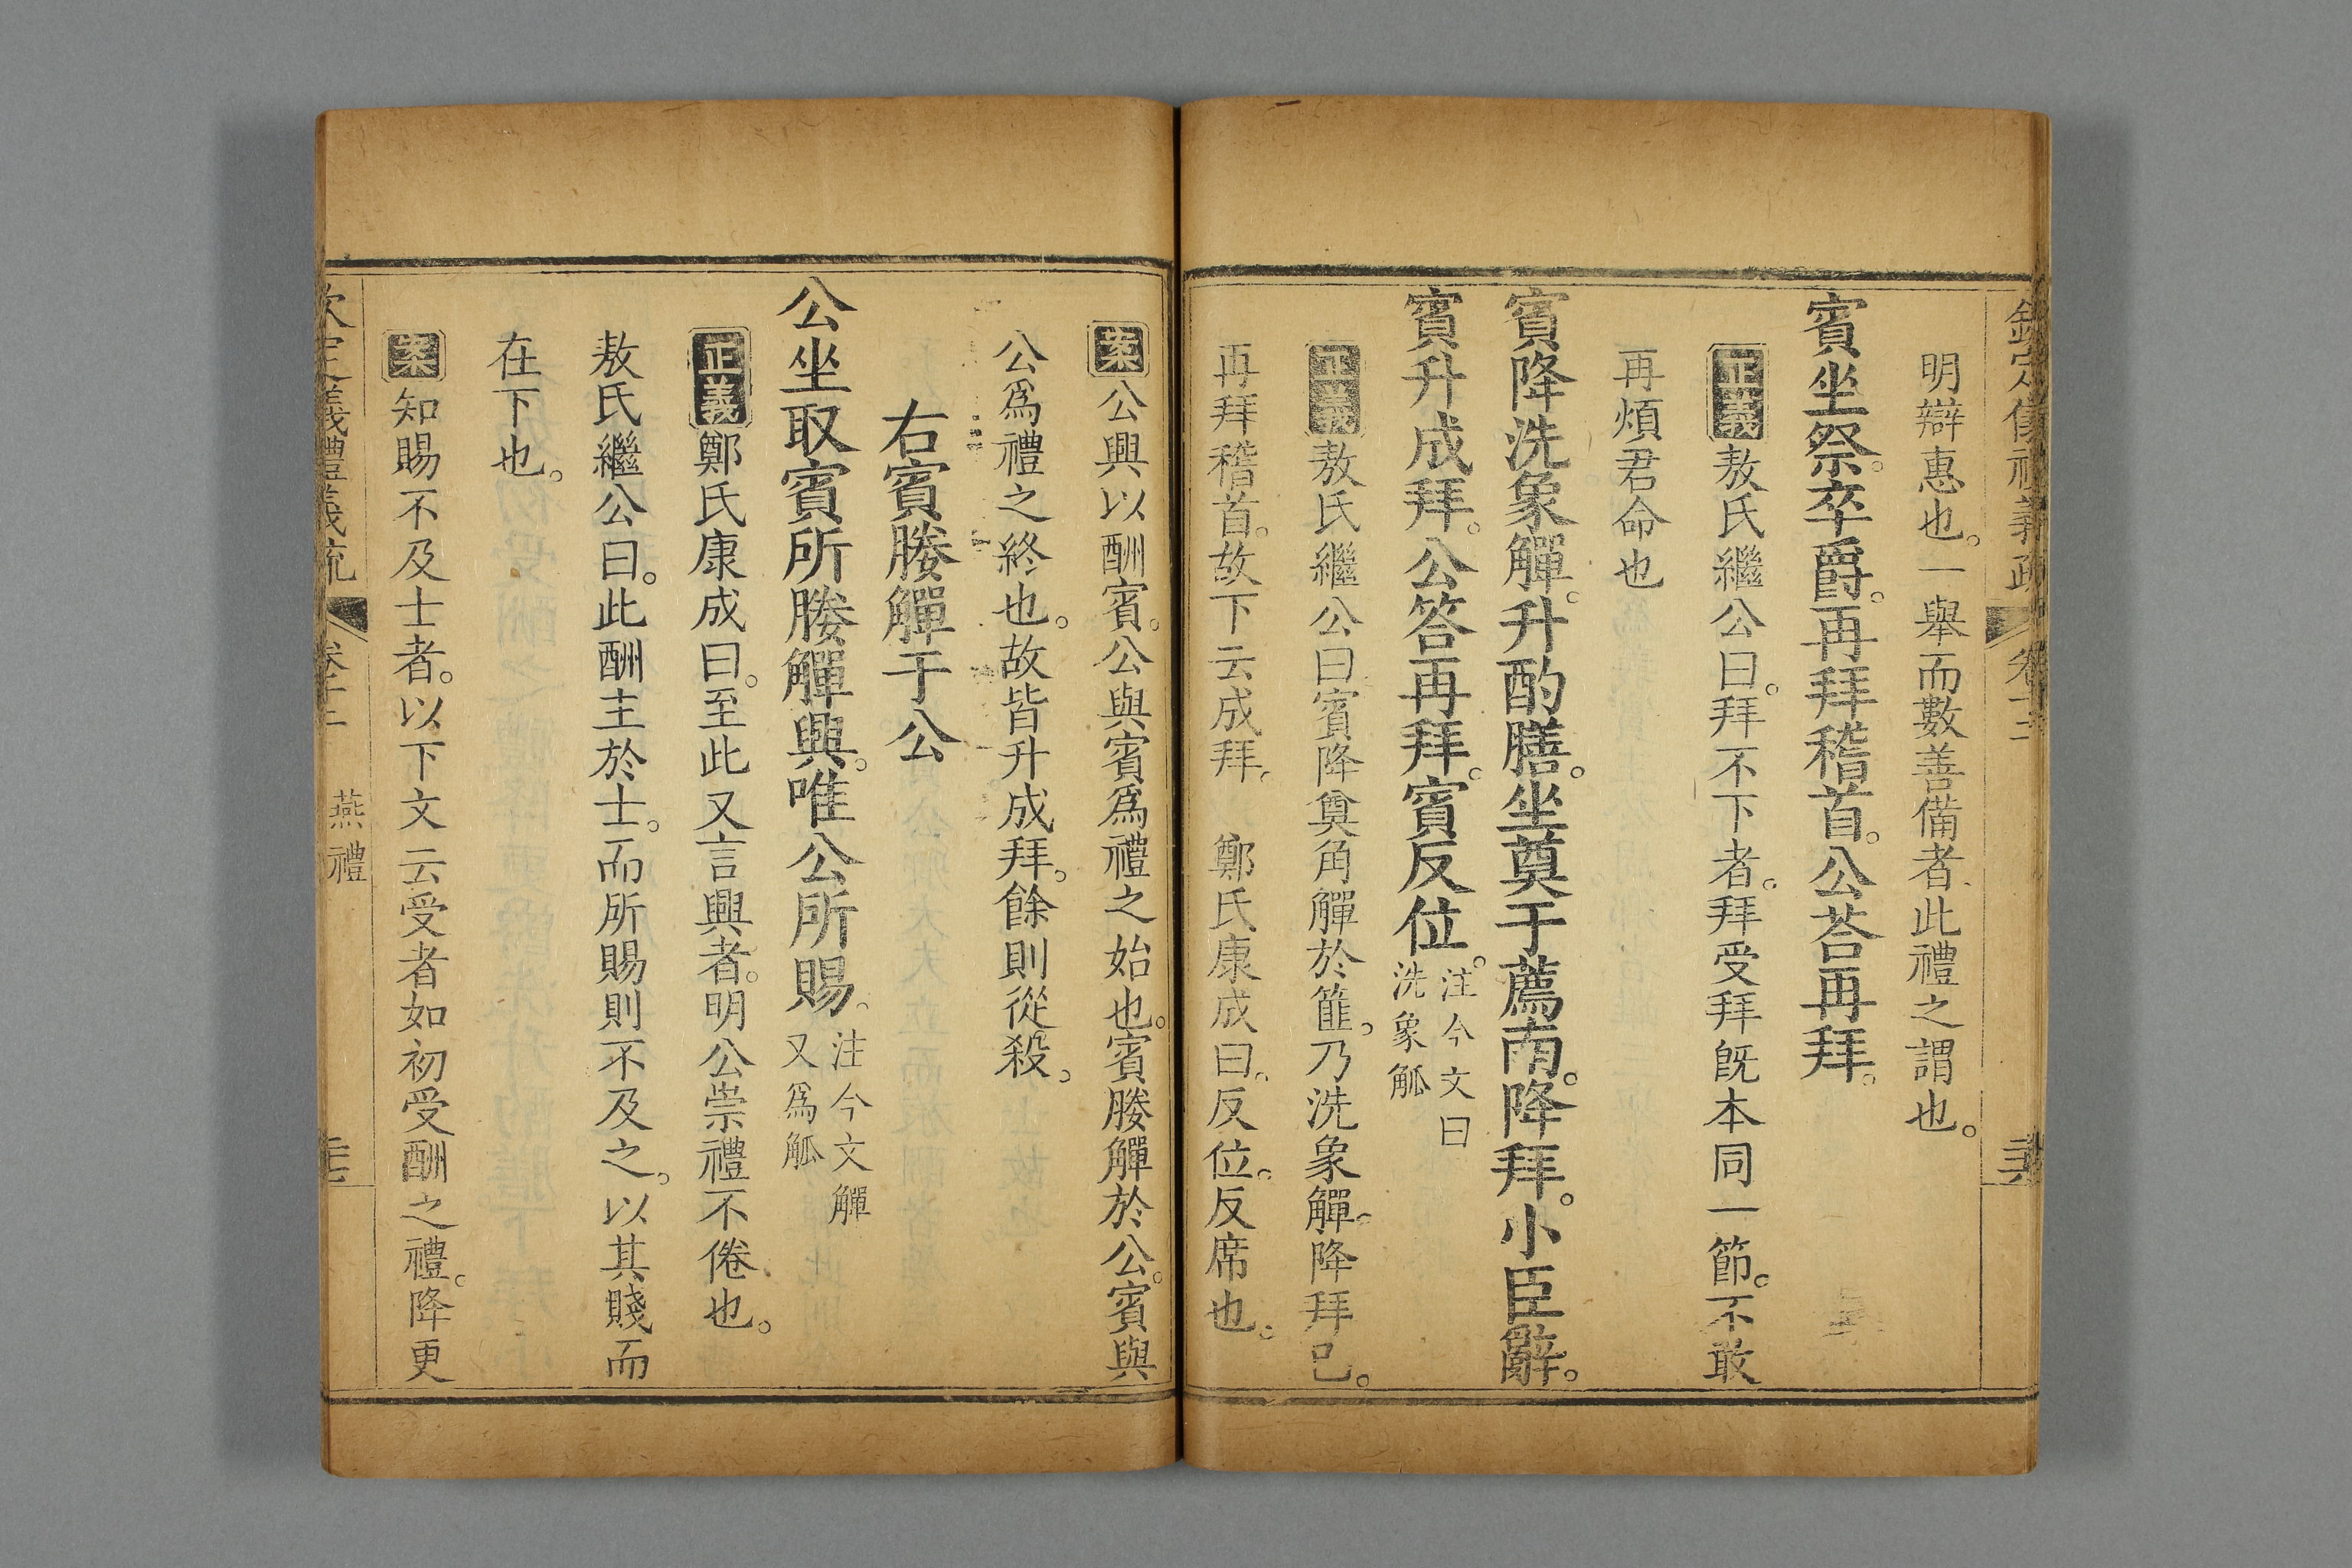 欽定儀禮義疏 卷十二
明辯惠也。一舉而數善備者。此禮之謂也。
賓坐祭。卒爵。再拜稽首。公荅再拜。
正義敖氏繼公曰。拜不下者。拜受拜旣本同一節。不敢
再煩君命也
賓降洗象觶。升酌膳。坐奠于薦南。降拜。小臣辭。
賓升成拜。公答再拜。賓反位。注今文曰
洗象觚
正義敖氏繼公曰賓降奠角觶於篚。乃洗象觶。降拜已。
再拜稽首。故下云成拜。 鄭氏康成曰。反位。反席也。
案公興以酬賓。公與賓爲禮之始也。賓媵觶於公。賓與
公爲禮之終也。故皆升成拜。餘則從殺。
右賓媵觶于公
公坐取賓所媵觶興。唯公所賜。注今文觶
又爲觚
正義鄭氏康成曰。至此又言興者。明公崇禮不倦也。
敖氏繼公曰。此酬主於士。而所賜則不及之。以其賤而
在下也。
案知賜不及士者。以下文云受者如初受酬之禮。降更
欽定義禮義疏 卷十二 燕禮